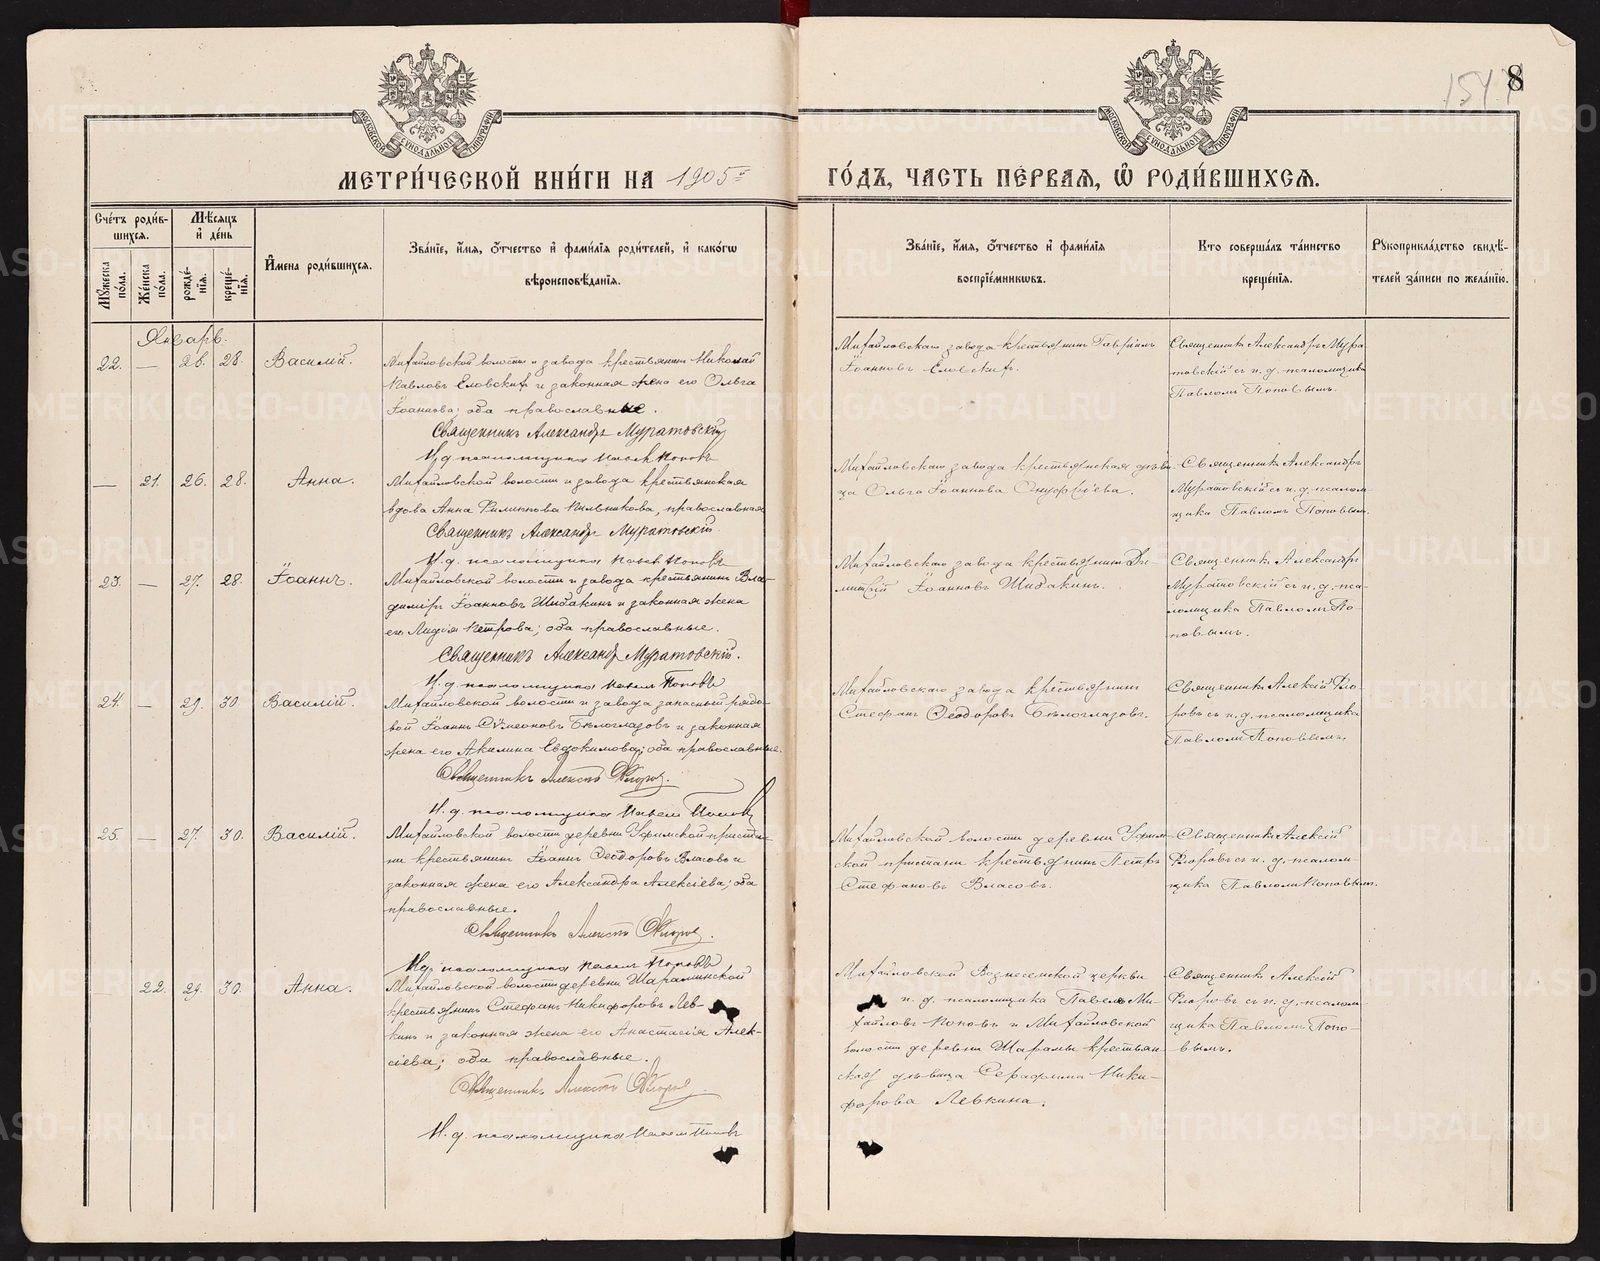 МЕТРИ́ЧЕСКОЙ КНИ́ГИ НА 1905й ГО́ДЪ, ЧАСТЬ ПЕ́РВАЯ, Ѡ РОДИ́ВШИХСЯ.
8
154
МОСКОВСКОЙ СѴНОДАЛЬНОЙ ТИПОГРАФІИ
МОСКОВСКОЙ СѴНОДАЛЬНОЙ ТИПОГРАФІИ
Сче́тъ роди́в-
шихся.
Мѣ́сяцъ
и҆ де́нь
Мꙋ́жеска
по́ла.
Же́нска
по́ла.
рожде́-
нїя.
креще́-
нїя.
И҆мена роди́вшихся.
Зва́нїе, и҆́мя, ѻ҆́тчество и҆ фами́лїя роди́телей, и҆ како́гѡ
вѣроисповѣ́данїя.
Зва́нїе, и҆́мя, ѻ҆́тчество и҆ фами́лїя
воспрїе́мникѡвъ.
Кто соверша́лъ та́инство
креще́нїя.
Рꙋкоприкла́дство свидѣ́-
телей за́писи по жела́нїю.
Январь.
22. — 26. 28. Василій.
Михайловской волости и завода крестьянинъ Николай
Павловъ Еловскихъ и законная жена его Ольга
Іоаннова; оба православные.
Священникъ Александръ Муратовскій
И. д. псаломщика Павелъ Поповъ
Михайловскаго завода крестьянинъ Гавріилъ
Іоанновъ Еловскихъ.
Священникъ Александръ Мура-
товскій съ и. д. псаломщика
Павломъ Поповымъ.
— 21. 26. 28. Анна.
Михайловской волости и завода крестьянская
вдова Анна Филиппова Пильникова, православная
Священникъ Александръ Муратовскій
И. д. псаломщика Павелъ Поповъ
Михайловскаго завода крестьянская дѣви-
ца Ольга Іоаннова Онуфріева.
Священникъ Александръ
Муратовскій съ и. д. псалом-
щика Павломъ Поповымъ.
23. — 27. 28. Іоаннъ.
Михайловской волости и завода крестьянинъ Вла-
диміръ Іоанновъ Шибакинъ и законная жена
его Лидія Петрова; оба православные.
Священникъ Александръ Муратовскій.
И. д. псаломщика Павелъ Поповъ
Михайловскаго завода крестьянинъ Ди-
митрій Іоанновъ Шибакинъ.
Священникъ Александръ
Муратовскій съ и. д. пса-
ломщика Павломъ По-
повымъ.
24. — 29. 30. Василій.
Михайловской волости и завода запасный рядо-
вой Іоаннъ Сѵмеоновъ Бѣлоглазовъ и законная
жена его Акилина Евдокимова; оба православные.
Священникъ Алексѣй Флоровъ.
И. д. псаломщика Павелъ Поповъ
Михайловскаго завода крестьянинъ
Стефанъ Ѳеодоровъ Бѣлоглазовъ.
Священникъ Алексій Фло-
ровъ съ и. д. псаломщика
Павломъ Поповымъ.
25. — 27. 30. Василій.
Михайловской волости деревни Уфимской приста-
ни крестьянинъ Іоаннъ Ѳеодоровъ Власовъ и
законная жена его Александра Алексіева; оба
православные.
Священникъ Алексѣй Флоровъ.
И. д. псаломщика Павелъ Поповъ
Михайловской волости деревни Уфим-
ской пристани крестьянинъ Петръ
Стефановъ Власовъ.
Священникъ Алексій
Флоровъ съ и. д. псалом-
щика Павломъ Поповымъ.
— 22. 29. 30. Анна.
Михайловской волости деревни Шараминской
крестьянинъ Стефанъ Никифоровъ Лев-
кинъ и законная жена его Анастасія Алек-
сіева; оба православные.
Священникъ Алексѣй Флоровъ
И. д. псаломщика Павелъ Поповъ
Михайловской Вознесенской церкви
и. д. псаломщика Павелъ Ми-
хайловъ Поповъ и Михайловской
волости деревни Шарамы крестьян-
ская дѣвица Серафима Ники-
форова Левкина.
Священникъ Алексій
Флоровъ съ и. д. псалом-
щика Павломъ Попо-
вымъ.
METRIKI.GASO-URAL.RU